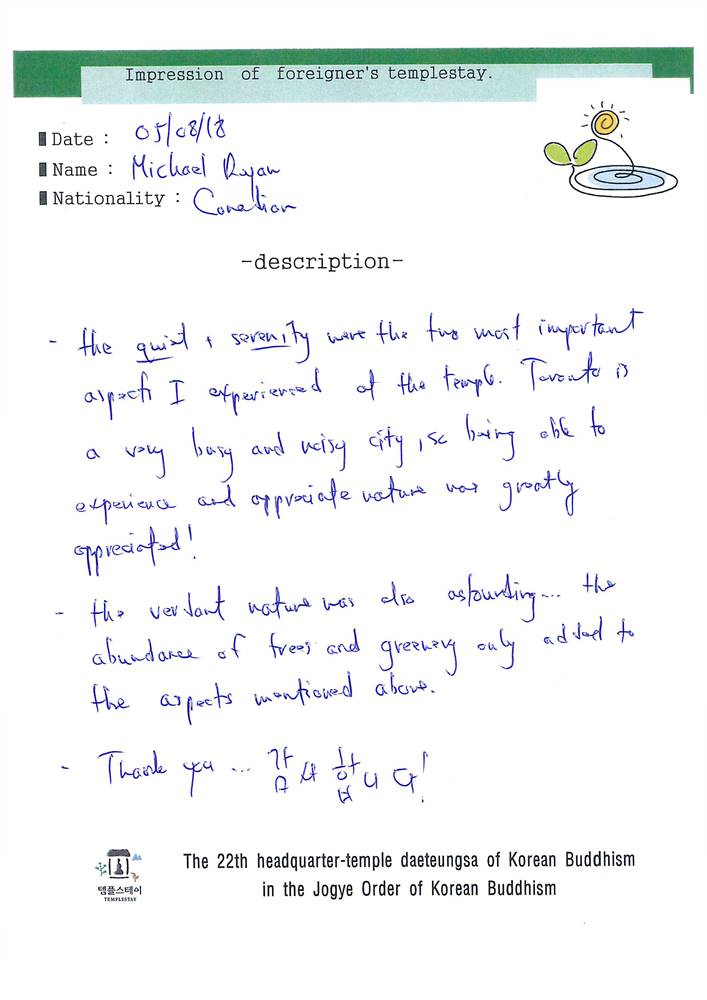 Impression of foreigner's templestay.
Date : 05/08/18
Name : Michael Ryan
Nationality : Canadian
-description-
- the quiet + serenity were the two most important
aspects I experienced at the temple. Toronto is
a very busy and noisy city, so being able to
experience and appreciate nature was greatly
appreciated!
- the verdant nature was also astounding... the
abundance of trees and greenery only added to
the aspects mentioned above.
- Thank you ... 감사합니다!
템플스테이
TEMPLESTAY
The 22th headquarter-temple daeteungsa of Korean Buddhism
in the Jogye Order of Korean Buddhism